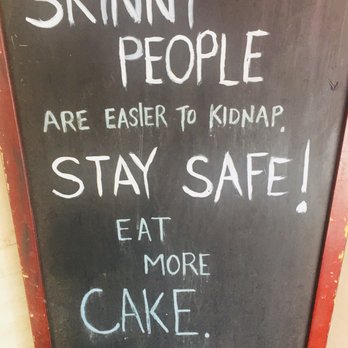 SKINNY
PEOPLE
ARE EASIER TO KIDNAP.
STAY SAFE!
EAT
MORE
CAKE.